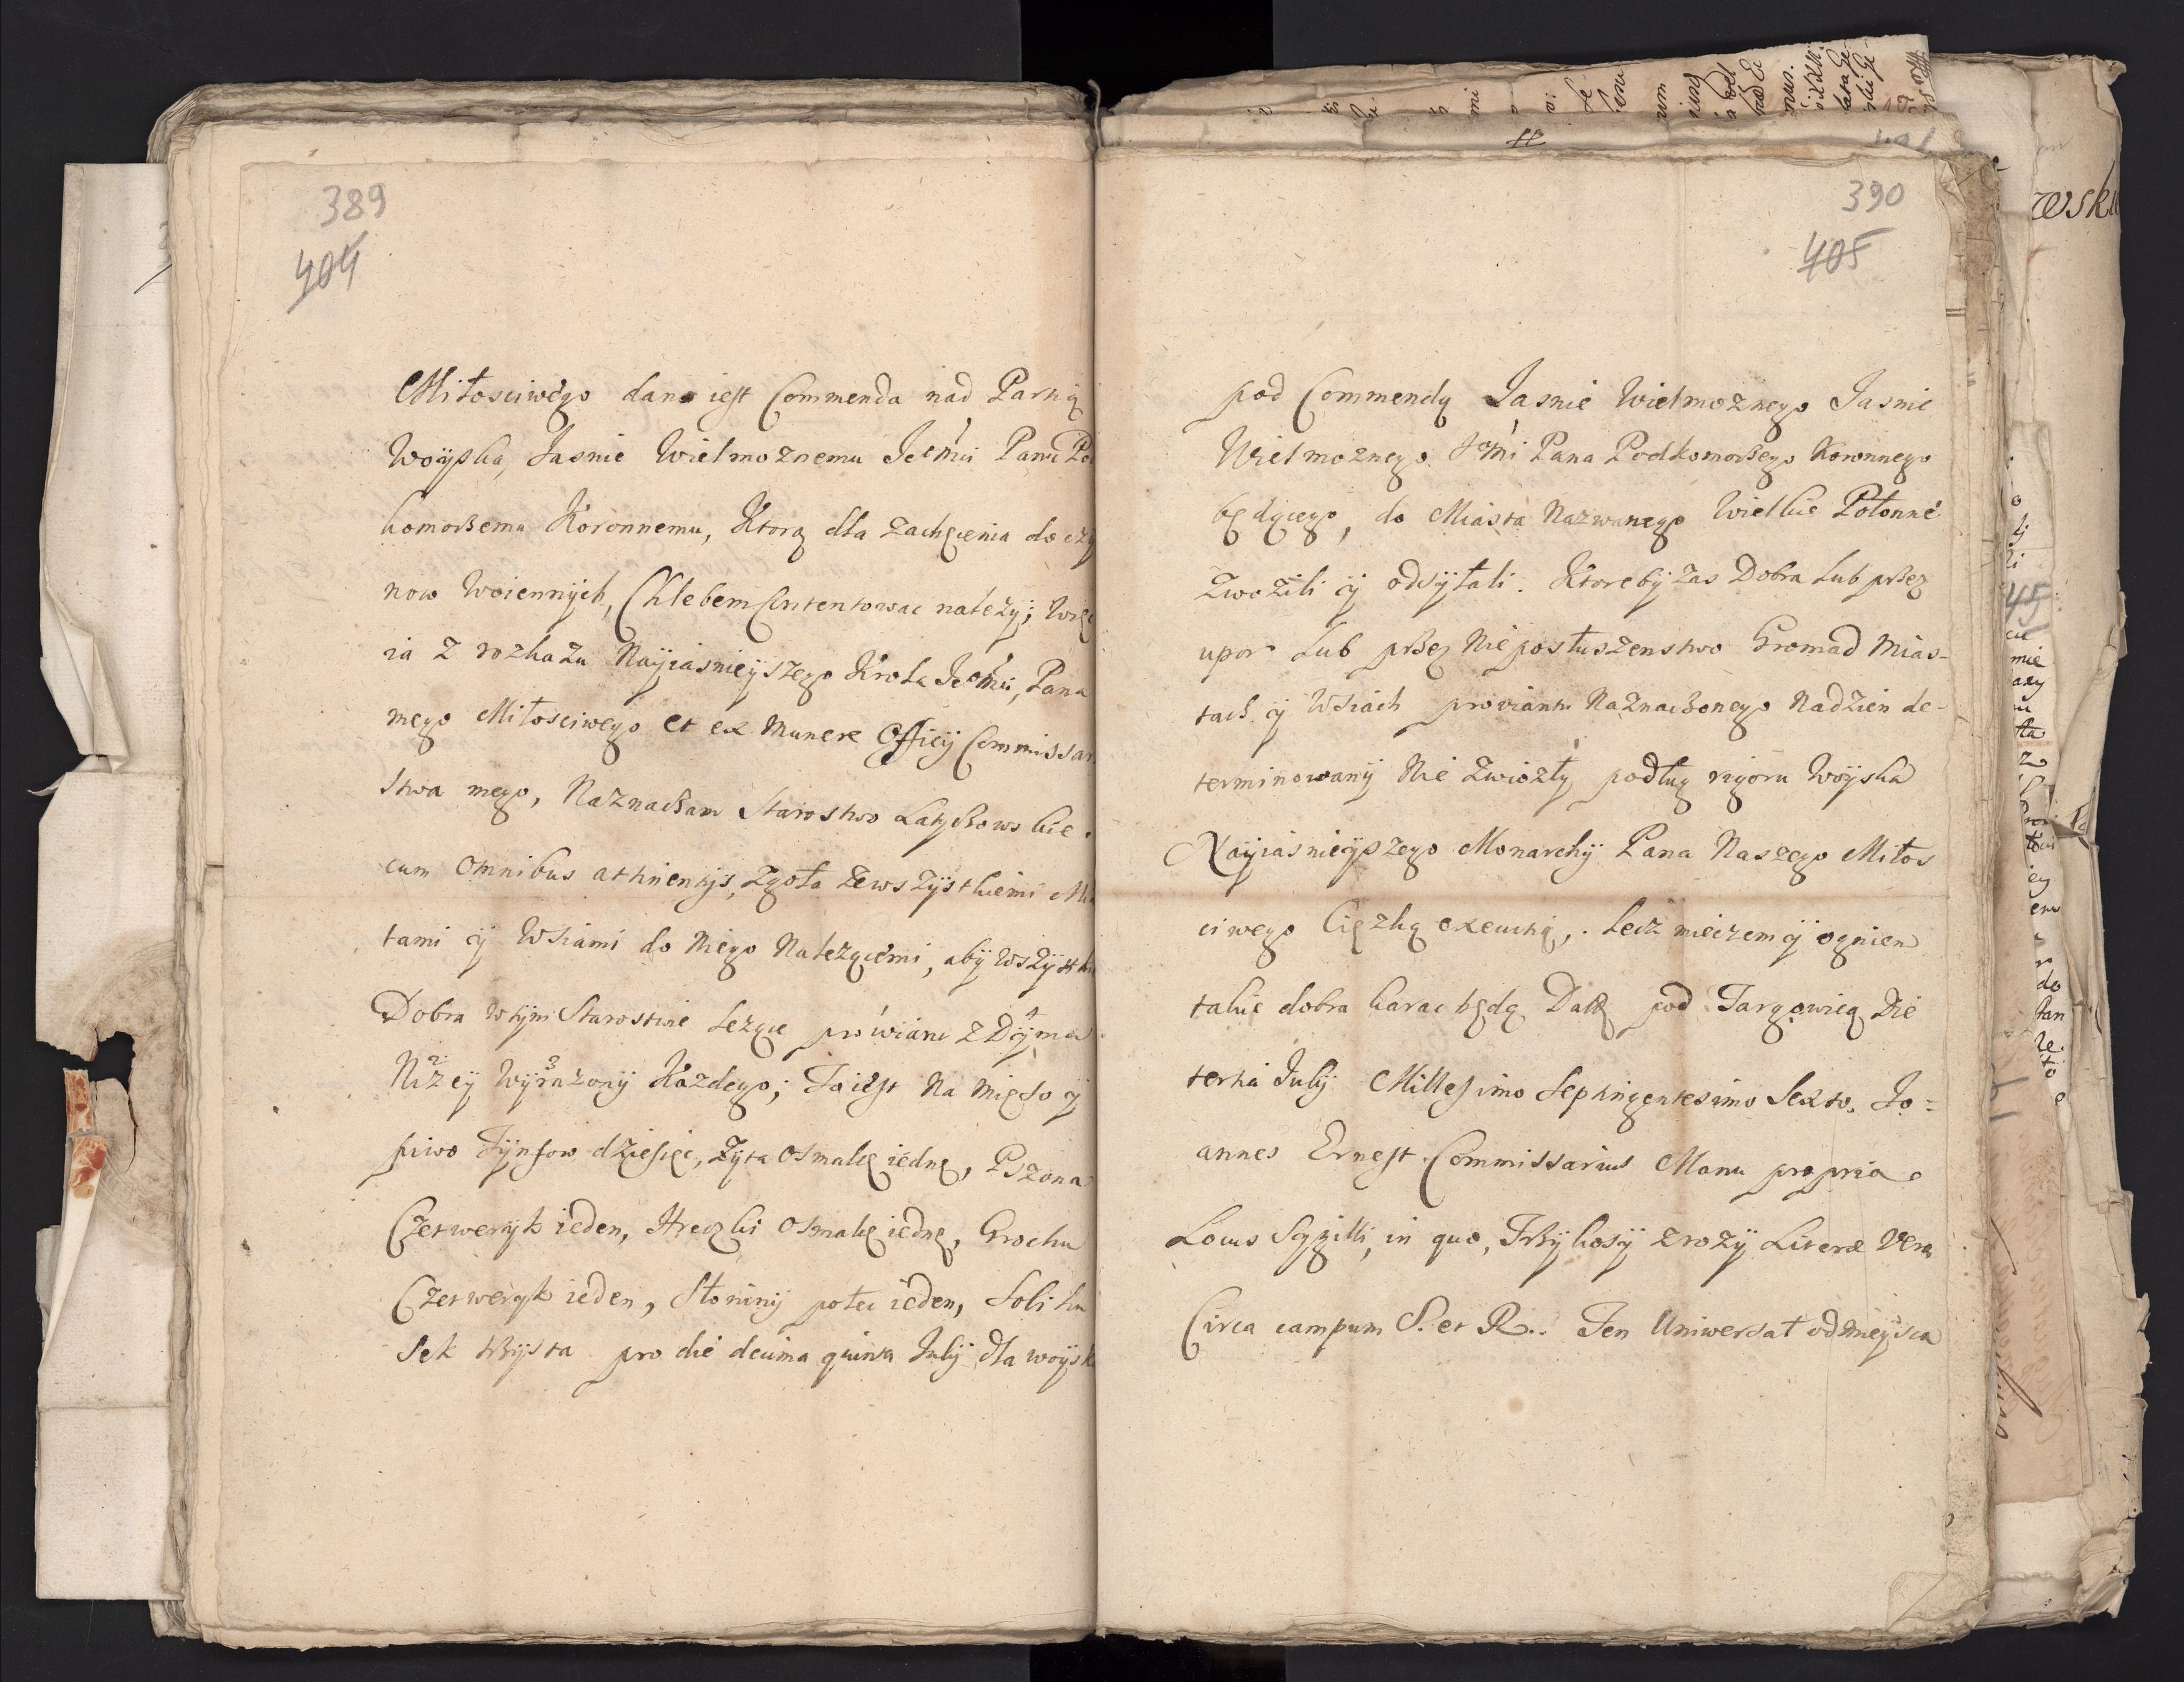 389
404
Miłosciwego dana iest Commenda nad Partią
Woyska, Jasnie Wielmoznemu Jeomći Panu Pod
komorzemu Koronnemu, Ktorą dla zachęcenia do czy
now Woiennych, Chlebem Contentowac nalezy; Więc
ia z rozkazu Nayiasnieyszego Krola Jeomći, Pana
mego Miłosciwego et ex Munere Officij Commissar
stwa mego, Naznaczam Starostwo Latyczowskie
cum omnibus attinentijs, zgoła zewszystkiemi Mia
tami y Wsiami do Niego Nalezącemi, aby wszystkie
Dobra wtym Starostwie lezące prowiant z Dyma
Nizey Wyrazony Kazdego; To iest Na Mięso y
piwo Tynfow dziesięc, Zyta osmakę iednę, Pszona
Czetweryk ieden, Hreczki osmakę iednę, Grochu
Czetweryk ieden, Słoniny połec ieden, Soli tu
sek trzysta pro die decima quinta July dla woysk
390
405
pod Commendą Jasnie Wielmoznego Jasnie
Wielmoznego Jomći Pana Podkomorzego Koronnego
będącego, do Miasta Nazwanego Wielkie Połonne
Zwozili y odsyłali. Ktoreby zas Dobra lub przez
upor Lub przez Nieposłuszenstwo Gromad Mias-
tach y Wsiach prowiantu Naznaczonego Nadzien de-
terminowany Nie Zwiozły, podług rygoru Woyska
Nayiasnieyszego Monarchy Pana Naszego Miłos
ciwego Cięzką exekucią, lecz mieczem y ogniem
takie dobra karac będą Datt pod Targowicą Die
tertia July Millesimo Septingentesimo Sexto. Jo=
annes Ernest Commissarius Manu propria
Locus Sigilli, in quo, Trzy kosy zrozy Litera Vera
Circa campum S. et R. Ten Uniwersał odmieysca